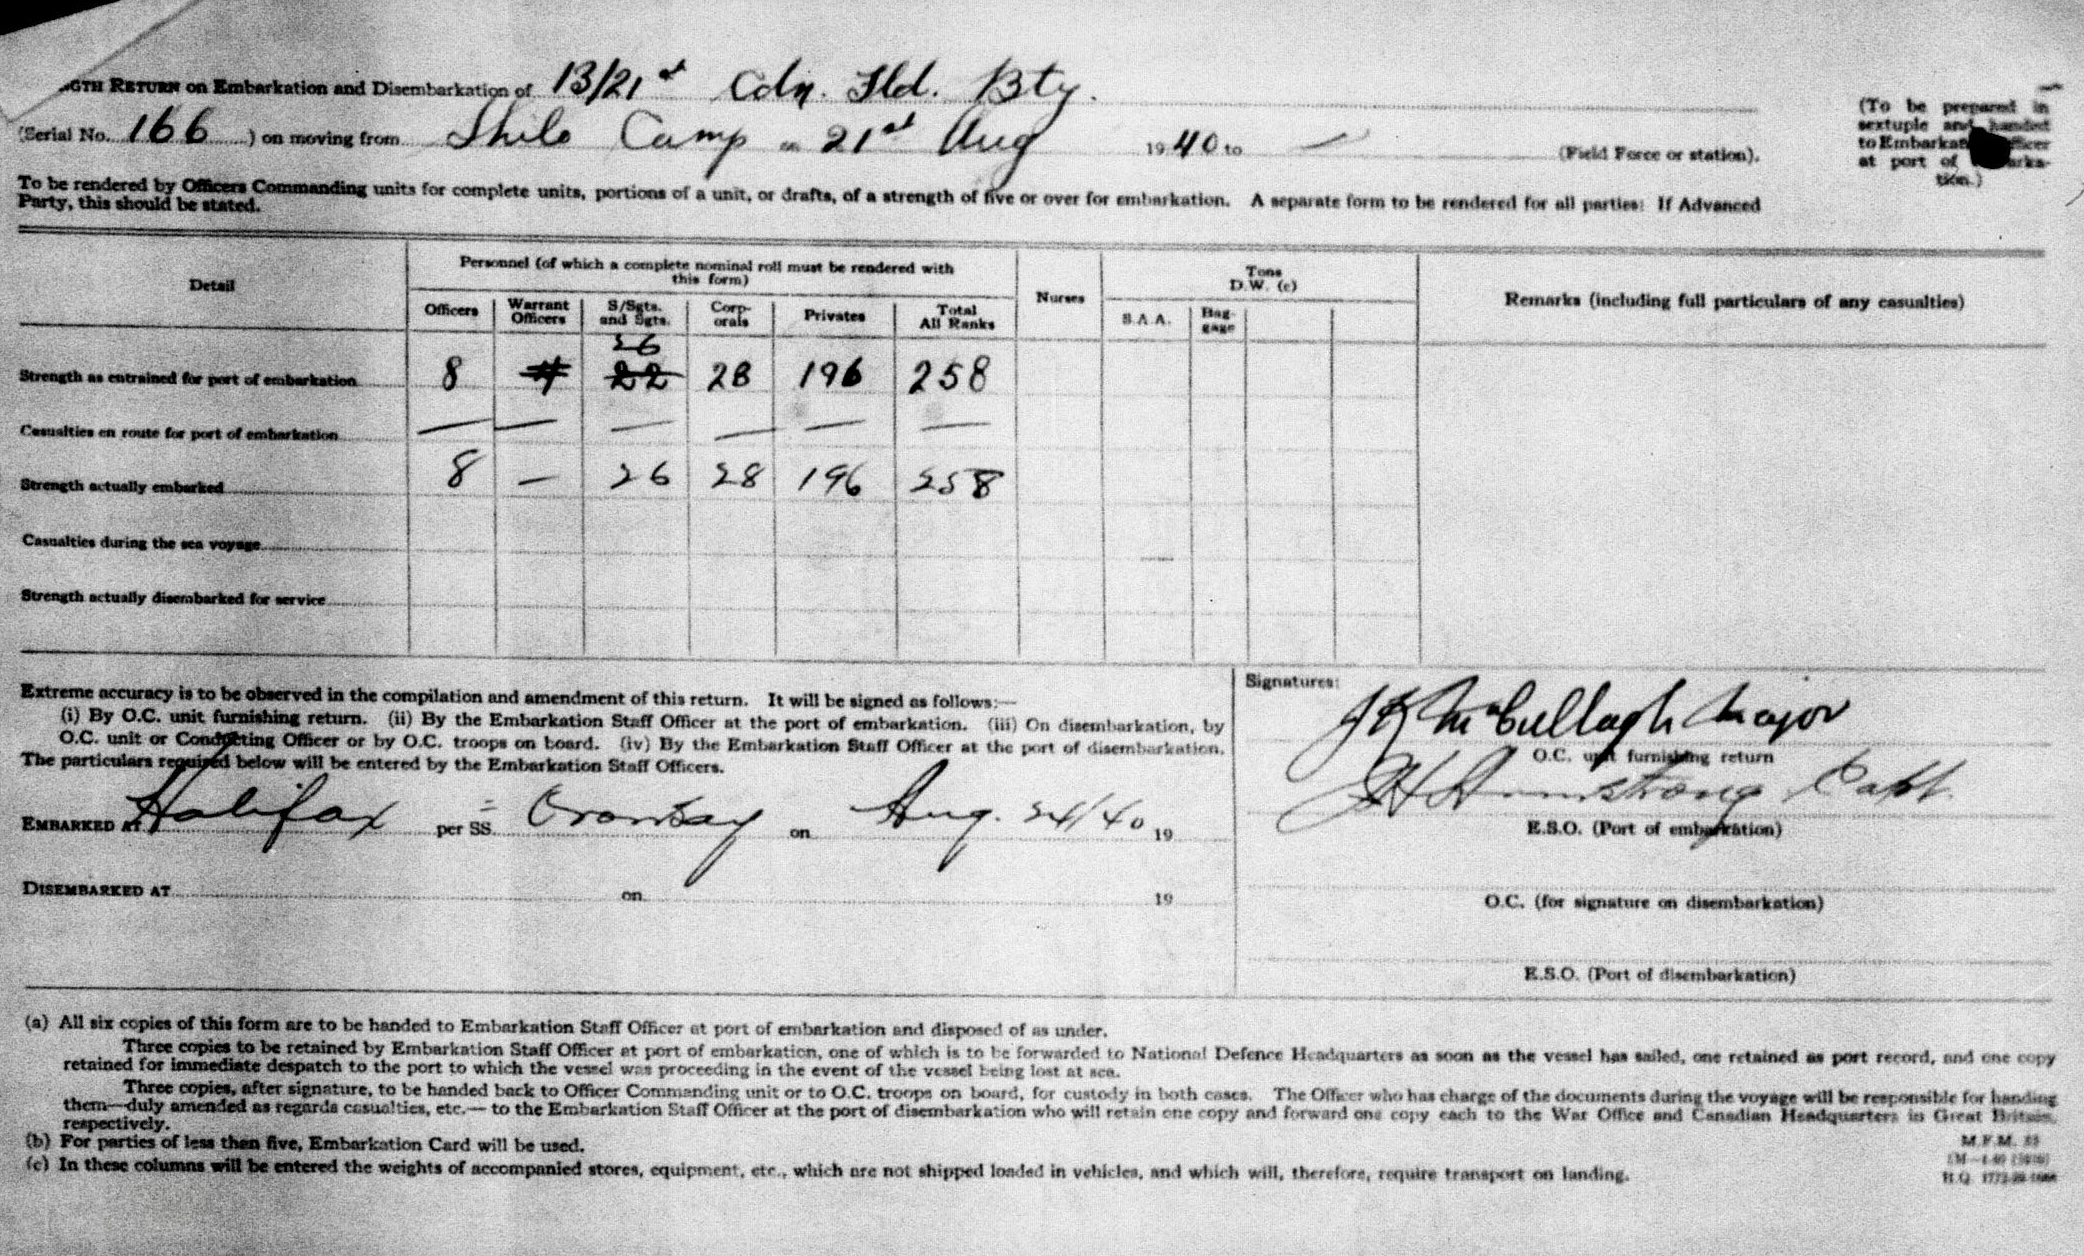 GTH RETURN on Embarkation and Disembarkation of 13/21st Cdn. Fld. Bty.
(Serial No. 166 ) on moving from Shilo Camp on 21st Aug 1940 to — (Field Force or station).
(To be prepared in
sextuple and handed
to Embarkation Officer
at port of Embarka-
tion.)
To be rendered by Officers Commanding units for complete units, portions of a unit, or drafts, of a strength of five or over for embarkation. A separate form to be rendered for all parties: If Advanced
Party, this should be stated.
Detail
Personnel (of which a complete nominal roll must be rendered with
this form)
Officers
Warrant
Officers
S/Sgts.
and Sgts.
Corp-
orals
Privates
Total
All Ranks
Nurses
Tons
D.W. (c)
S.A.A.
Bag-
gage
Remarks (including full particulars of any casualties)
26
Strength as entrained for port of embarkation 8 4 22 28 196 258
Casualties en route for port of embarkation — — — — — —
Strength actually embarked 8 — 26 28 196 258
Casualties during the sea voyage
Strength actually disembarked for service
Extreme accuracy is to be observed in the compilation and amendment of this return. It will be signed as follows:—
(i) By O.C. unit furnishing return. (ii) By the Embarkation Staff Officer at the port of embarkation. (iii) On disembarkation, by
O.C. unit or Conducting Officer or by O.C. troops on board. (iv) By the Embarkation Staff Officer at the port of disembarkation.
The particulars required below will be entered by the Embarkation Staff Officers.
EMBARKED AT Halifax per SS. Oronsay on Aug. 24/40 19
DISEMBARKED AT on 19
Signatures:
JK McCullagh Major
O.C. unit furnishing return
JH Armstrong Capt.
E.S.O. (Port of embarkation)
O.C. (for signature on disembarkation)
E.S.O. (Port of disembarkation)
(a) All six copies of this form are to be handed to Embarkation Staff Officer at port of embarkation and disposed of as under.
Three copies to be retained by Embarkation Staff Officer at port of embarkation, one of which is to be forwarded to National Defence Headquarters as soon as the vessel has sailed, one retained as port record, and one copy
retained for immediate despatch to the port to which the vessel was proceeding in the event of the vessel being lost at sea.
Three copies, after signature, to be handed back to Officer Commanding unit or to O.C. troops on board, for custody in both cases. The Officer who has charge of the documents during the voyage will be responsible for handing
them—duly amended as regards casualties, etc.— to the Embarkation Staff Officer at the port of disembarkation who will retain one copy and forward one copy each to the War Office and Canadian Headquarters in Great Britain,
respectively.
(b) For parties of less than five, Embarkation Card will be used.
(c) In these columns will be entered the weights of accompanied stores, equipment, etc., which are not shipped loaded in vehicles, and which will, therefore, require transport on landing.
M.F.M.
H.Q.